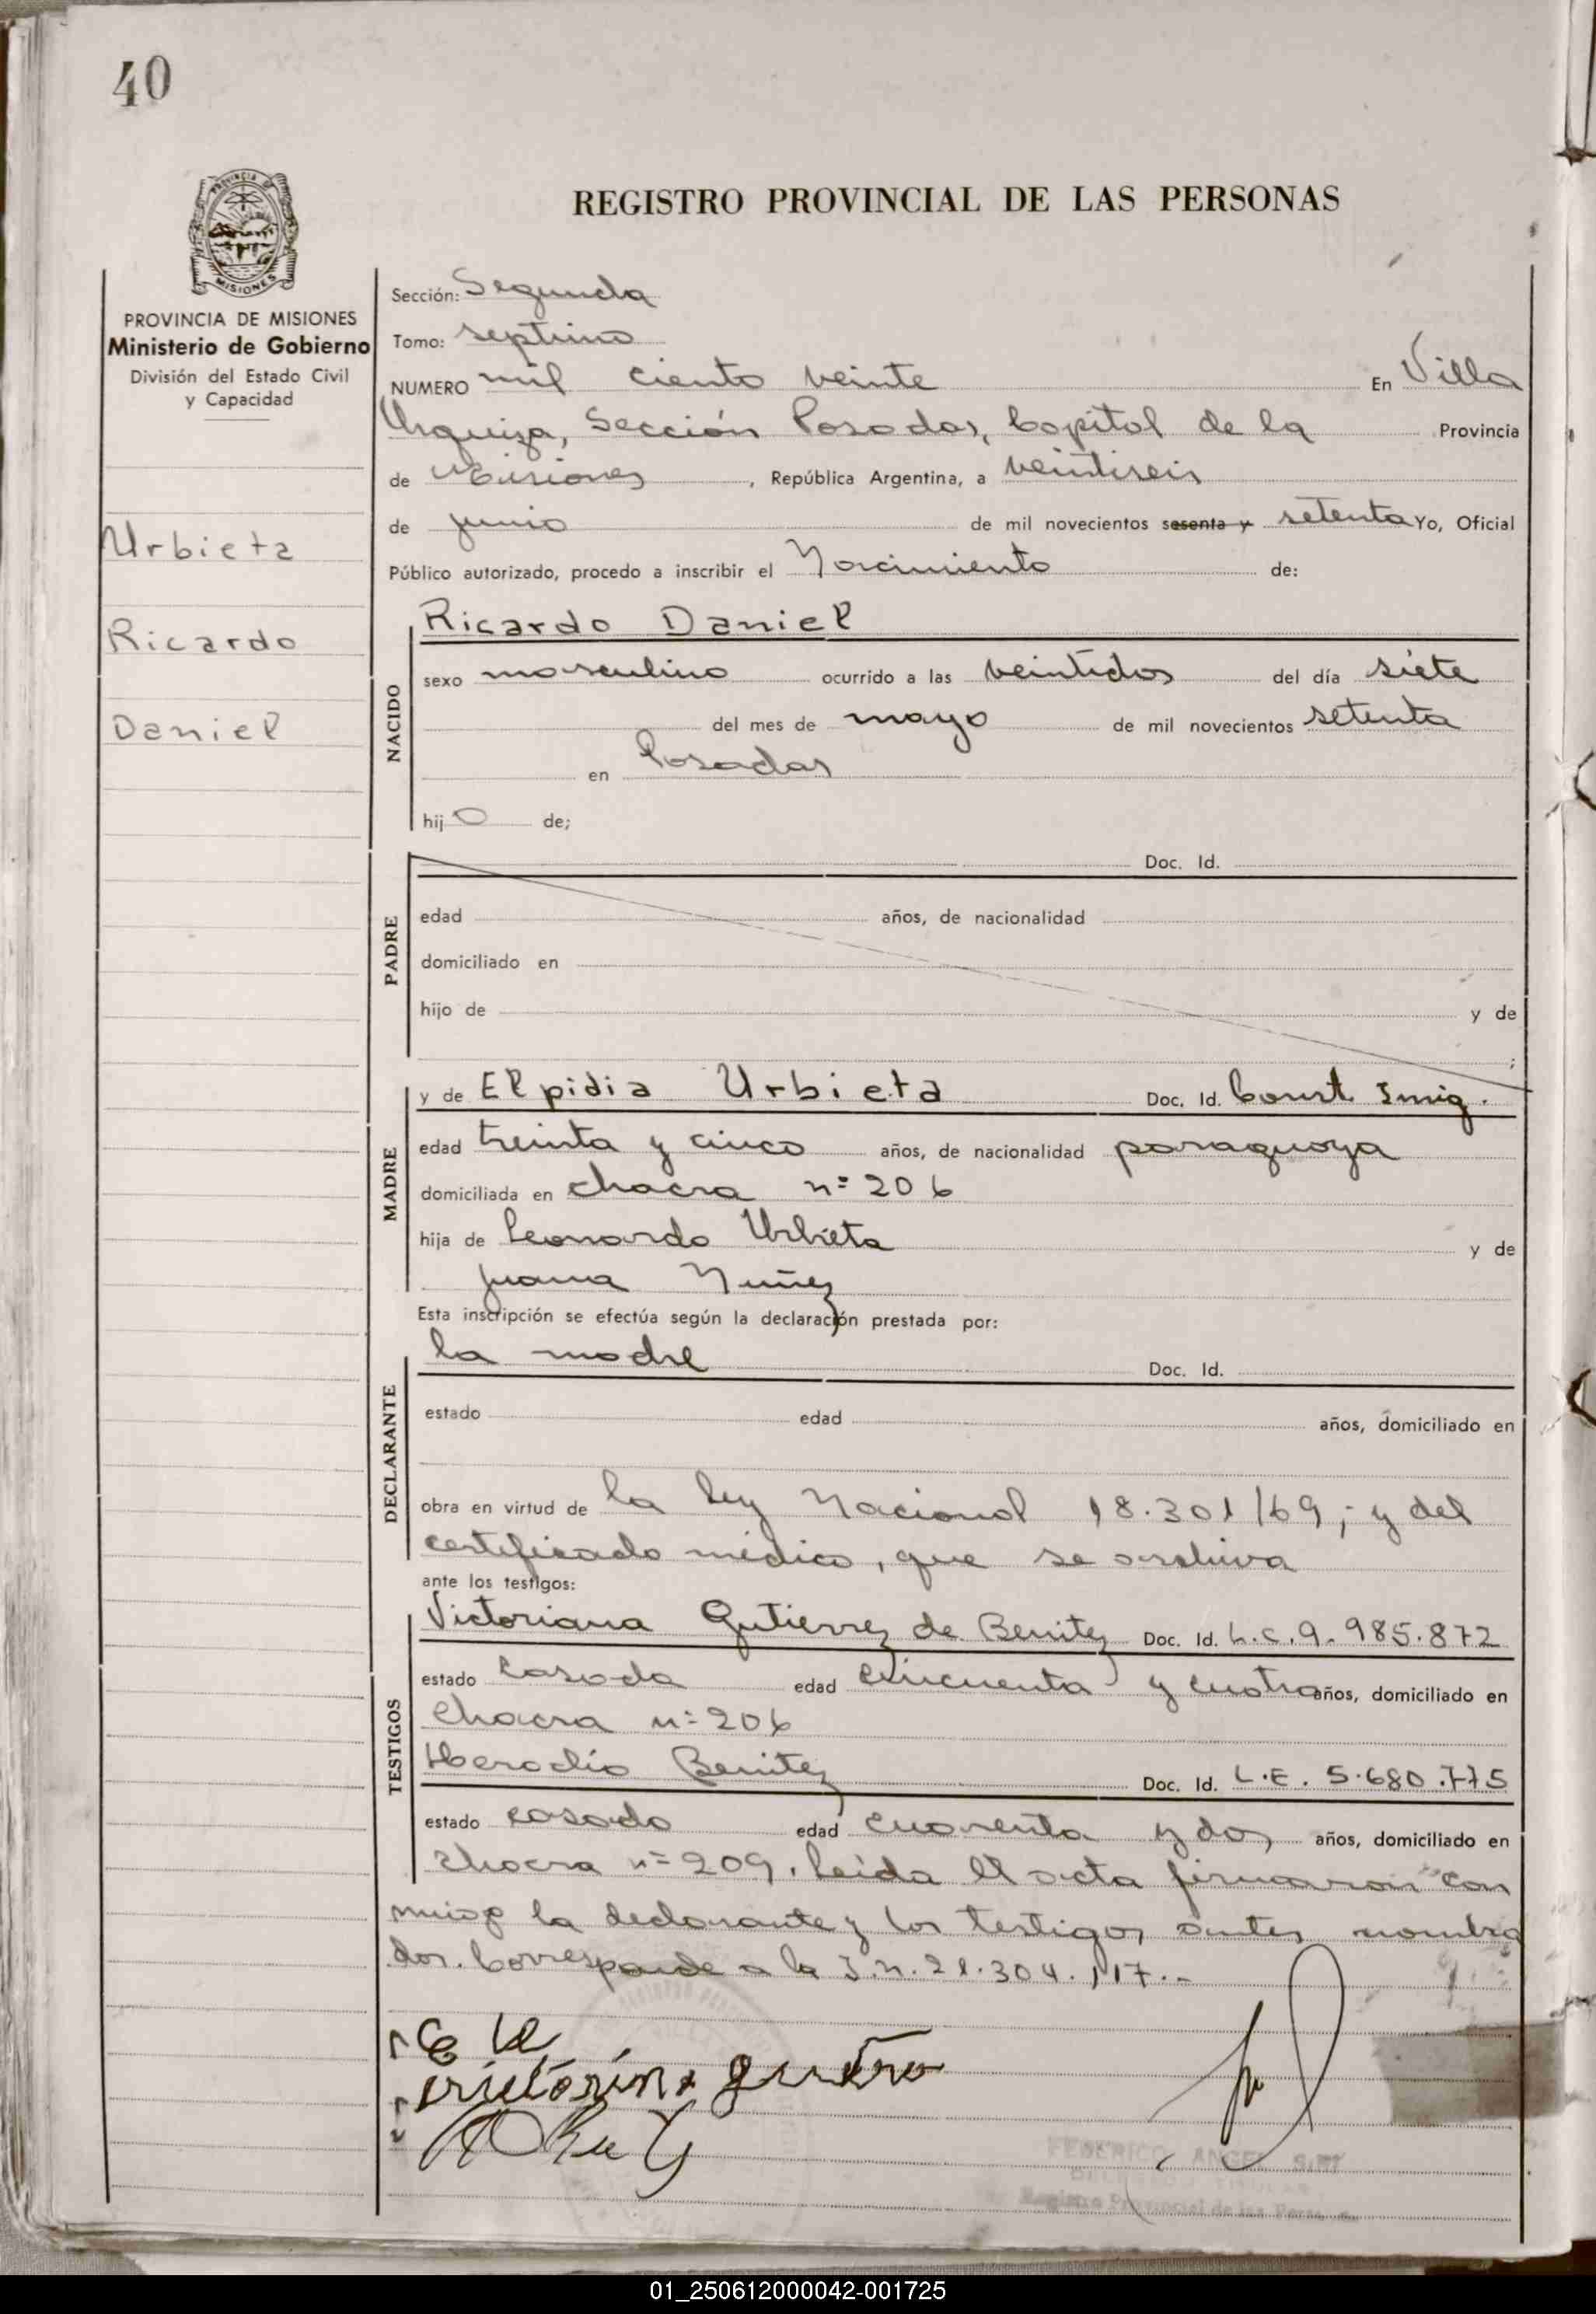 40
PROVINCIA DE
MISIONES
REGISTRO PROVINCIAL DE LAS PERSONAS
PROVINCIA DE MISIONES
Ministerio de Gobierno
División del Estado Civil
y Capacidad
Urbieta
Ricardo
Daniel
Sección: Segunda
Tomo: septimo
NUMERO mil ciento veinte En Villa
Urquiza, Sección Posadas, Capital de la Provincia
de Misiones, República Argentina, a veintiseis
de junio de mil novecientos sesenta y setenta Yo, Oficial
Público autorizado, procedo a inscribir el Nacimiento de:
NACIDO
Ricardo Daniel
sexo masculino ocurrido a las veintidos del día siete
del mes de mayo de mil novecientos setenta
en Posadas
hij o de;
PADRE
Doc. Id.
edad años, de nacionalidad
domiciliado en
hijo de y de
;
MADRE
y de Elpidia Urbieta Doc. Id. Const Inmig.
edad treinta y cinco años, de nacionalidad paraguaya
domiciliada en chacra nº 206
hija de Leonardo Urbieta y de
Juana Nuñez
Esta inscripción se efectúa según la declaración prestada por:
DECLARANTE
la madre Doc. Id.
estado edad años, domiciliado en
obra en virtud de la ley Nacional 18.301/69; y del
certificado médico, que se archiva
ante los testigos:
TESTIGOS
Victoriana Gutierrez de Benitez Doc. Id. L.C. 9.985.872
estado casada edad cincuenta y cuatro años, domiciliado en
Chacra nº 206
Herodio Benitez Doc. Id. L.E. 5.680.775
estado casado edad cuarenta y dos años, domiciliado en
chacra nº 209. Leida el acta firmaron con
migo la declarante y los testigos antes nombra
dos. Corresponde a la I.N. 21.304.117.-
FEDERICO ANGEL
Registro Provincial de las Personas
01_250612000042-001725